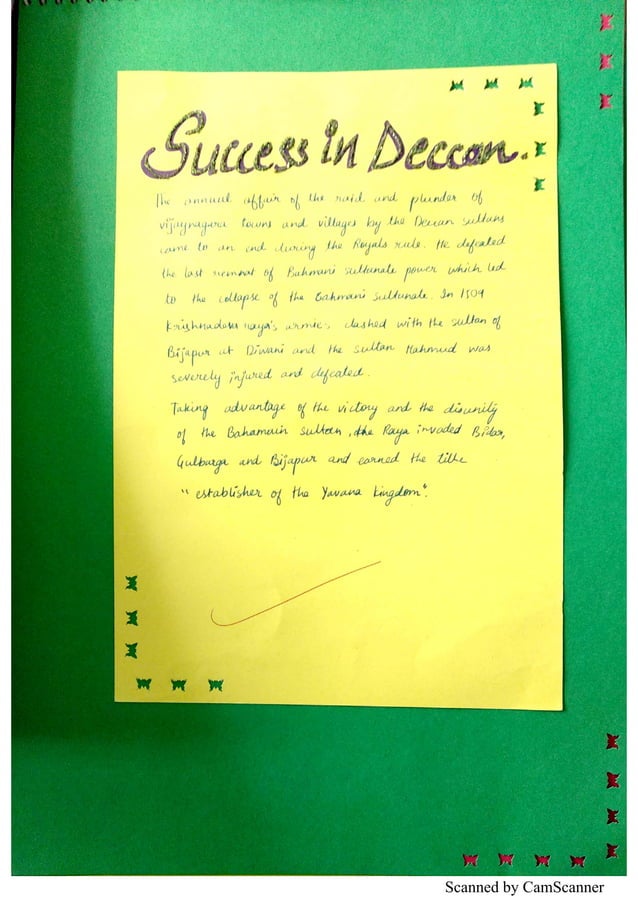 Success in Deccan.
The annual affair of the raid and plunder of
vijaynagara towns and villages by the Deccan sultans
came to an end during the Royals rule. He defeated
the last remnat of Bahmani sultanate power which led
to the collapse of the Bahmani Sultunate. In 1509
Krishnadeva raya's armies clashed with the sultan of
Bijapur at Diwani and the sultan Mahmud was
severely injured and defeated.
Taking advantage of the victory and the disunity
of the Bahamain Sultan, the Raya invaded Bidar,
Gulbarga and Bijapur and earned the title
"establisher of the Yavana kingdom".
Scanned by CamScanner